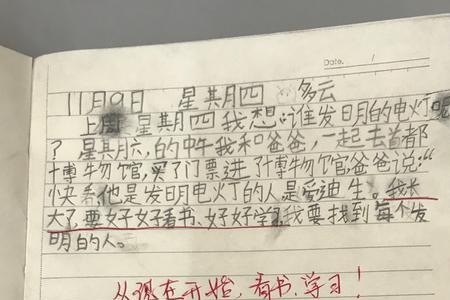 Date. /
11月9日 星其月四 多云
上周星期四我想:谁发日明的电灯呢
?星期六,的中午我和爸爸,一起去首都
博物馆,买了门票进了博物馆,爸爸说:“
快看,他是发明电灯的人是爱迪生。我长
大了,要好好看书、好好学习,我要找到每个发
明的人。
从现在开始,看书、学习!